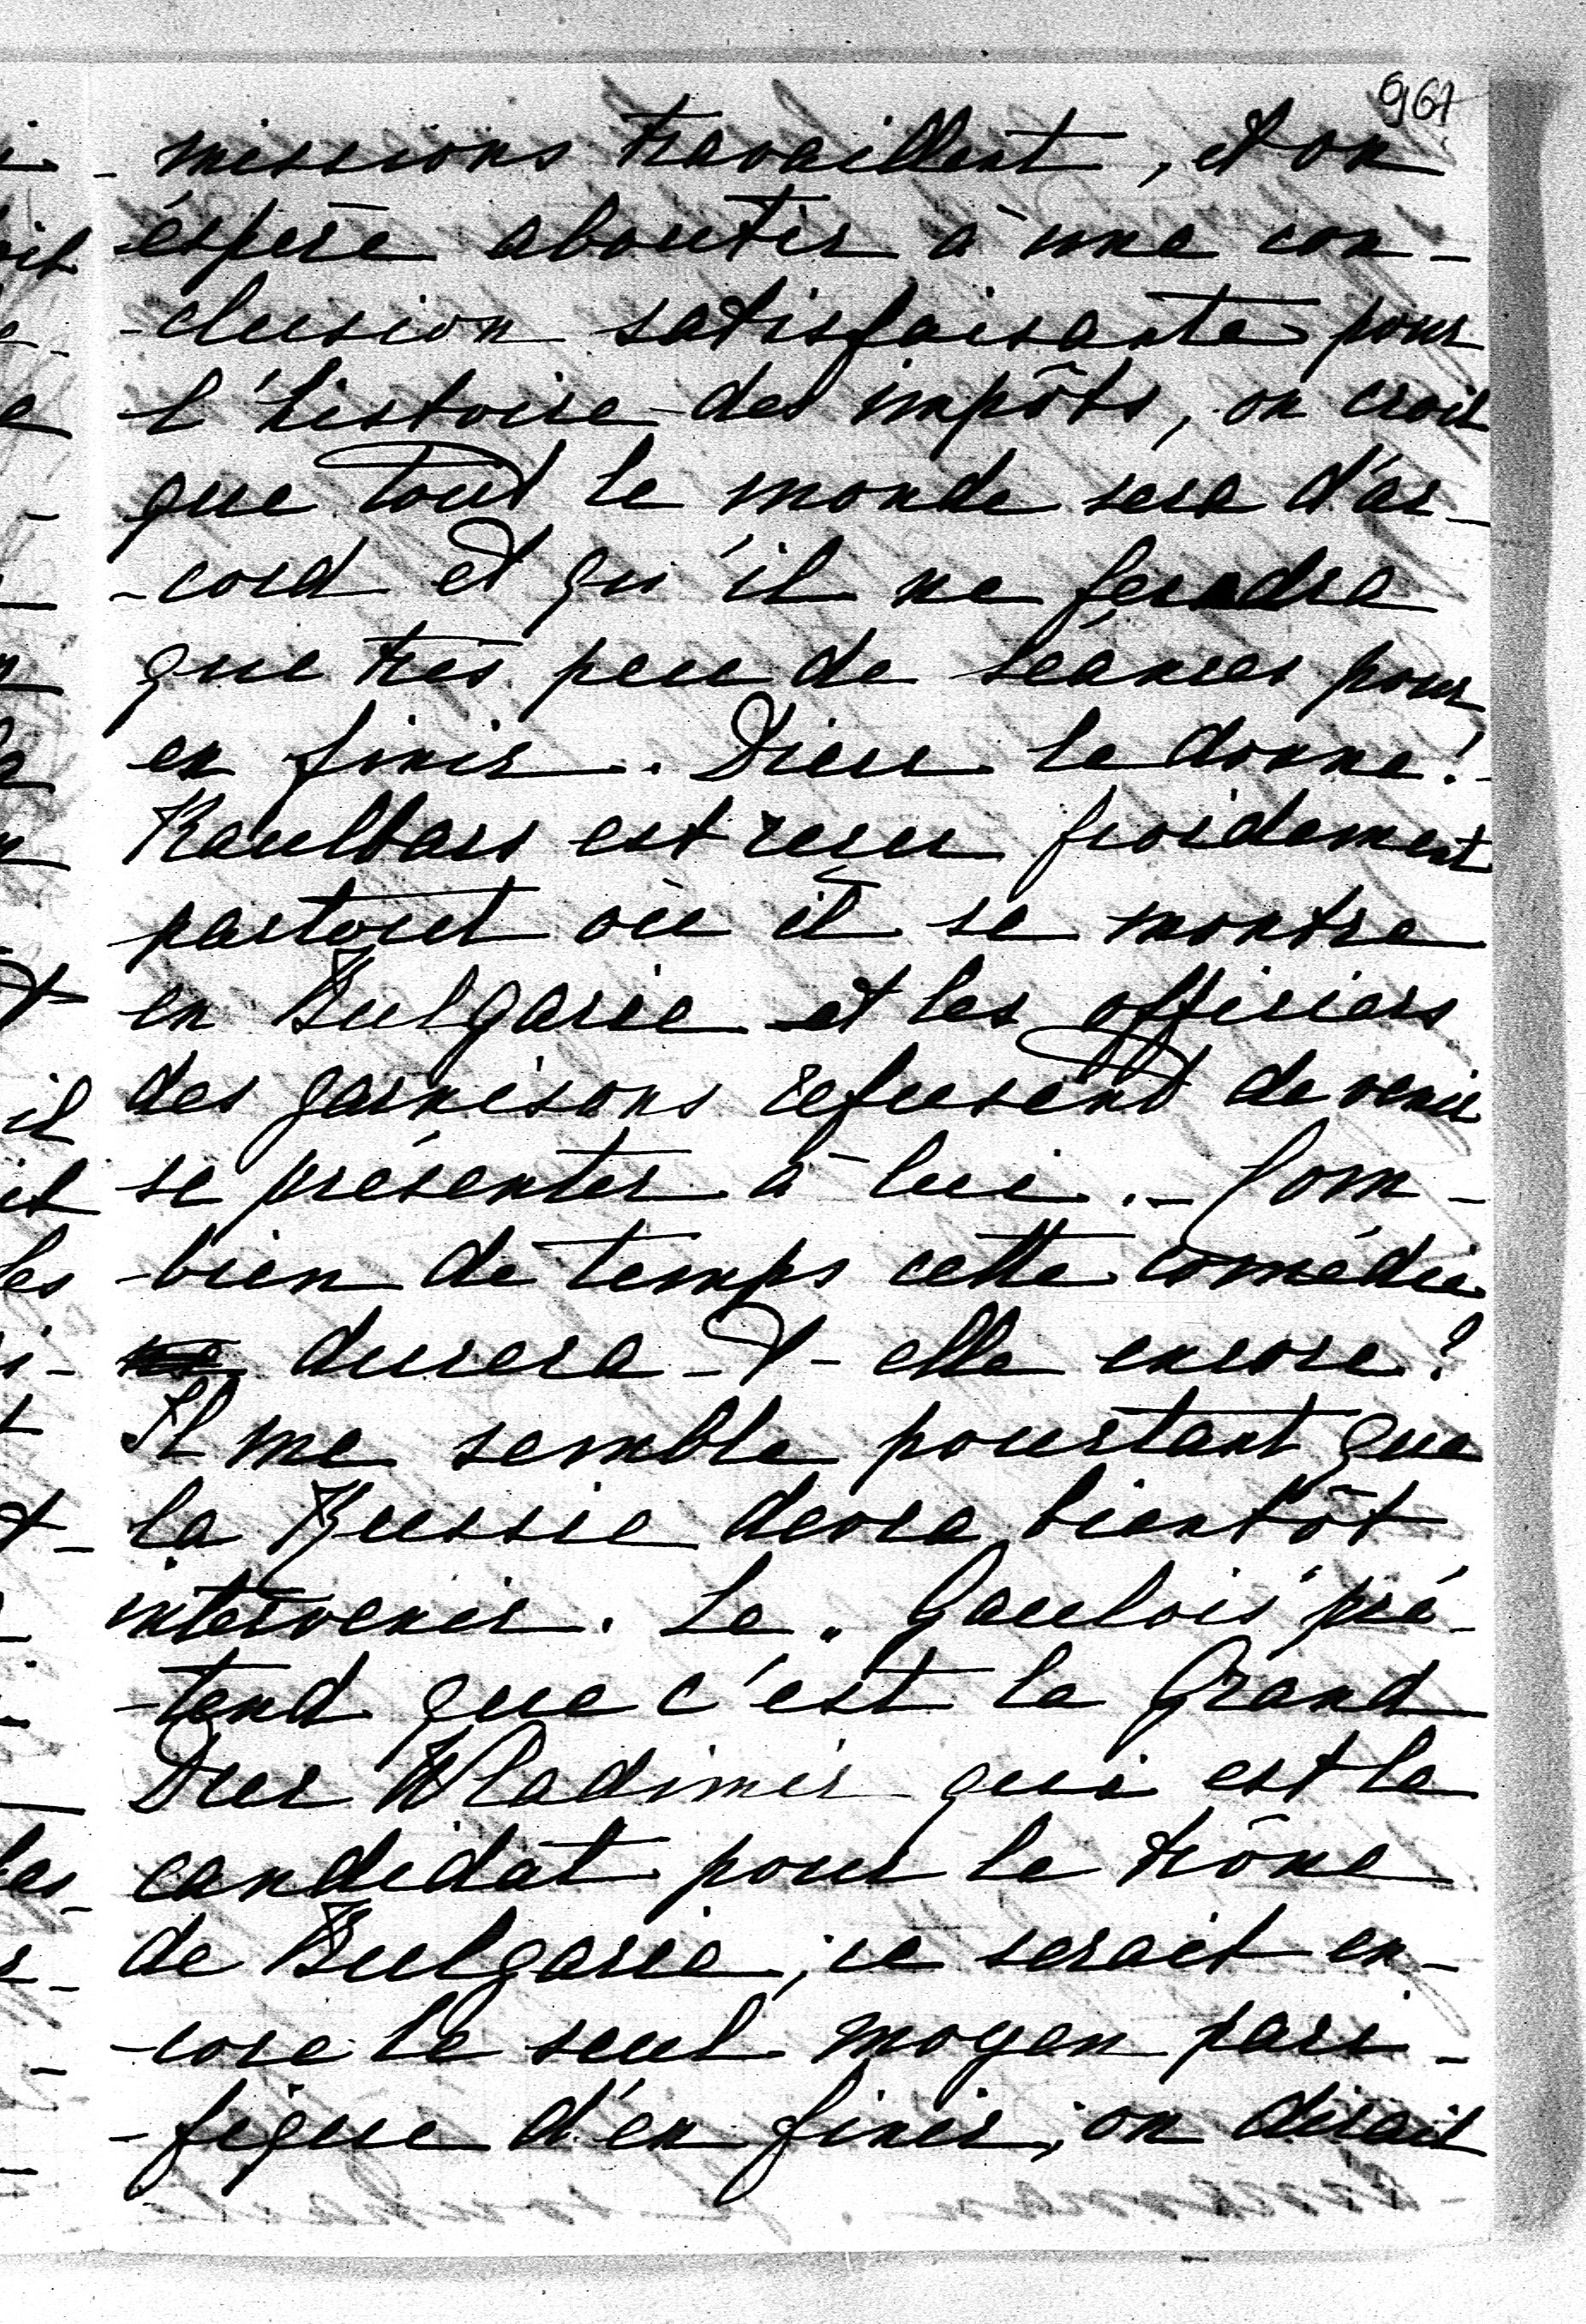 967
- missions travaillent, et on
éspère aboutir à une con-
-clusion satisfaisante pour
l'histoire des impôts, on croit
que tout le monde sera d'ac-
-cord et qu'il ne faudra
que très peu de séances pour
en finir. Dieu le donne!
Kaulbars est reçu froidement
partout où il se montre
en Bulgarie et les officiers
des garnisons refusent de venir
se présenter à lui. - Com-
-bien de temps cette comédie
durera-t-elle encore?
Il me semble pourtant que
la Russie devra bientôt
intervenir. Le „Gaulois" pré-
-tend que c'est le Grand
Duc Wladimir qui est le
candidat pour le trône
de Bulgarie; ce serait en-
-core le seul moyen paci-
-fique d'en finir; on dirait